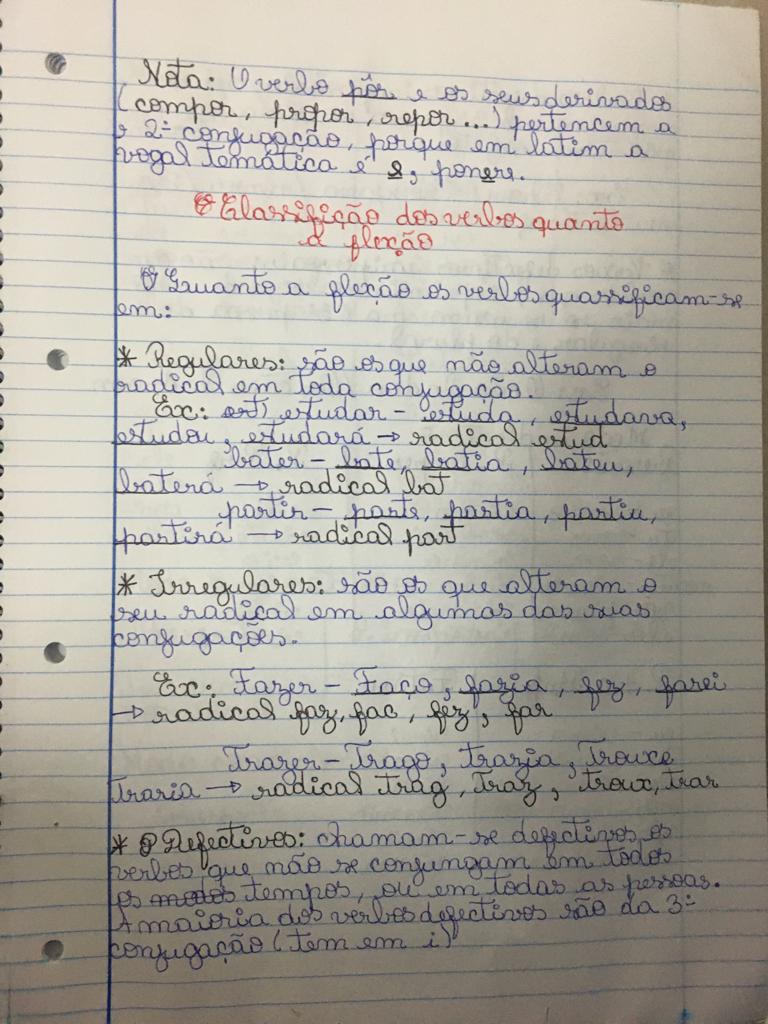 Nota: O verbo pôr e os seus derivados
(compor, propor, repor...) pertencem a
2ª conjugação, porque em latim a
vogal temática é e, ponere.
Classifição dos verbos quanto
a flexção
Quanto a flexção os verbos quassificam-se
em:
* Regulares: são os que não alteram o
radical em toda conjugação.
Ex: estudar - estuda, estudava,
estudou, estudará → radical estud
bater - bate, batia, bateu,
baterá → radical bat
partir - parte, partia, partiu,
partirá → radical part
* Irregulares: são os que alteram o
seu radical em algumas das suas
conjugações.
Ex: Fazer - Faço, fazia, fez, farei
→ radical faz, fac, fez, far
Trazer - Trago, trazia, Trouxe
Traria → radical trag, Traz, troux, trar
* Defectivos: chamam-se defectivos os
verbos que não se conjungam em todos
os modos tempos, ou em todas as pessoas.
A maioria dos verbos defectivos são da 3ª
conjugação (tem em i)